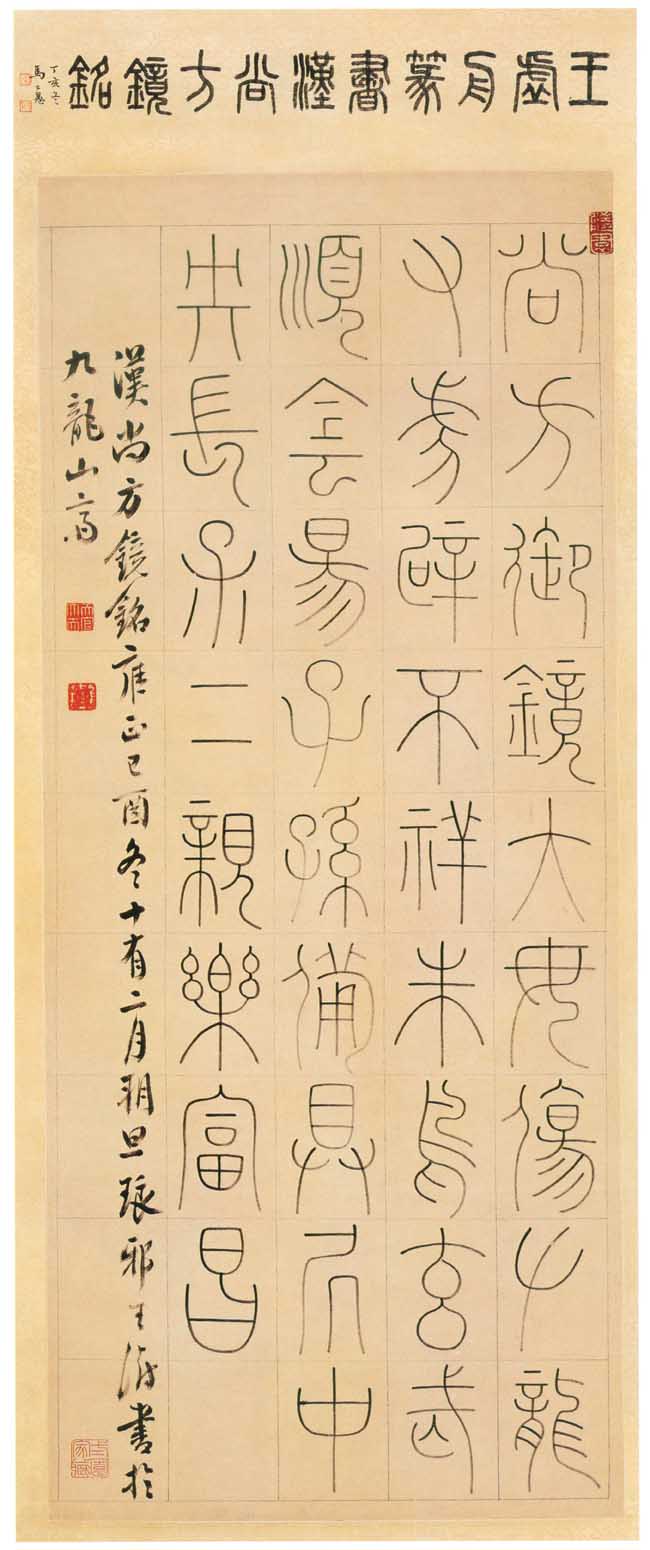 王虛舟篆書漢尚方鏡銘
丁亥冬
尚方御鏡大毋傷𠂇龍
又虎辟不祥朱鳥玄武
順侌昜子孫備具凥中
央長保二親樂富昌
漢尚方鏡銘雍正己酉冬十有二月朔旦琅邪王澍書於
九龍山齋